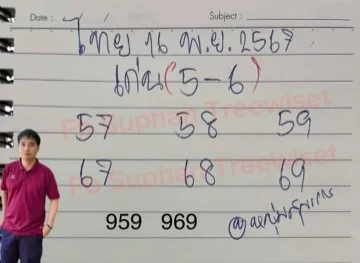 Date : Subject :
ไทย 16 พ.ย. 2567
เด่น (5-6)
57 58 59
67 68 69
959 969
FB Suphan Treewiset
FB Suphan Treewiset